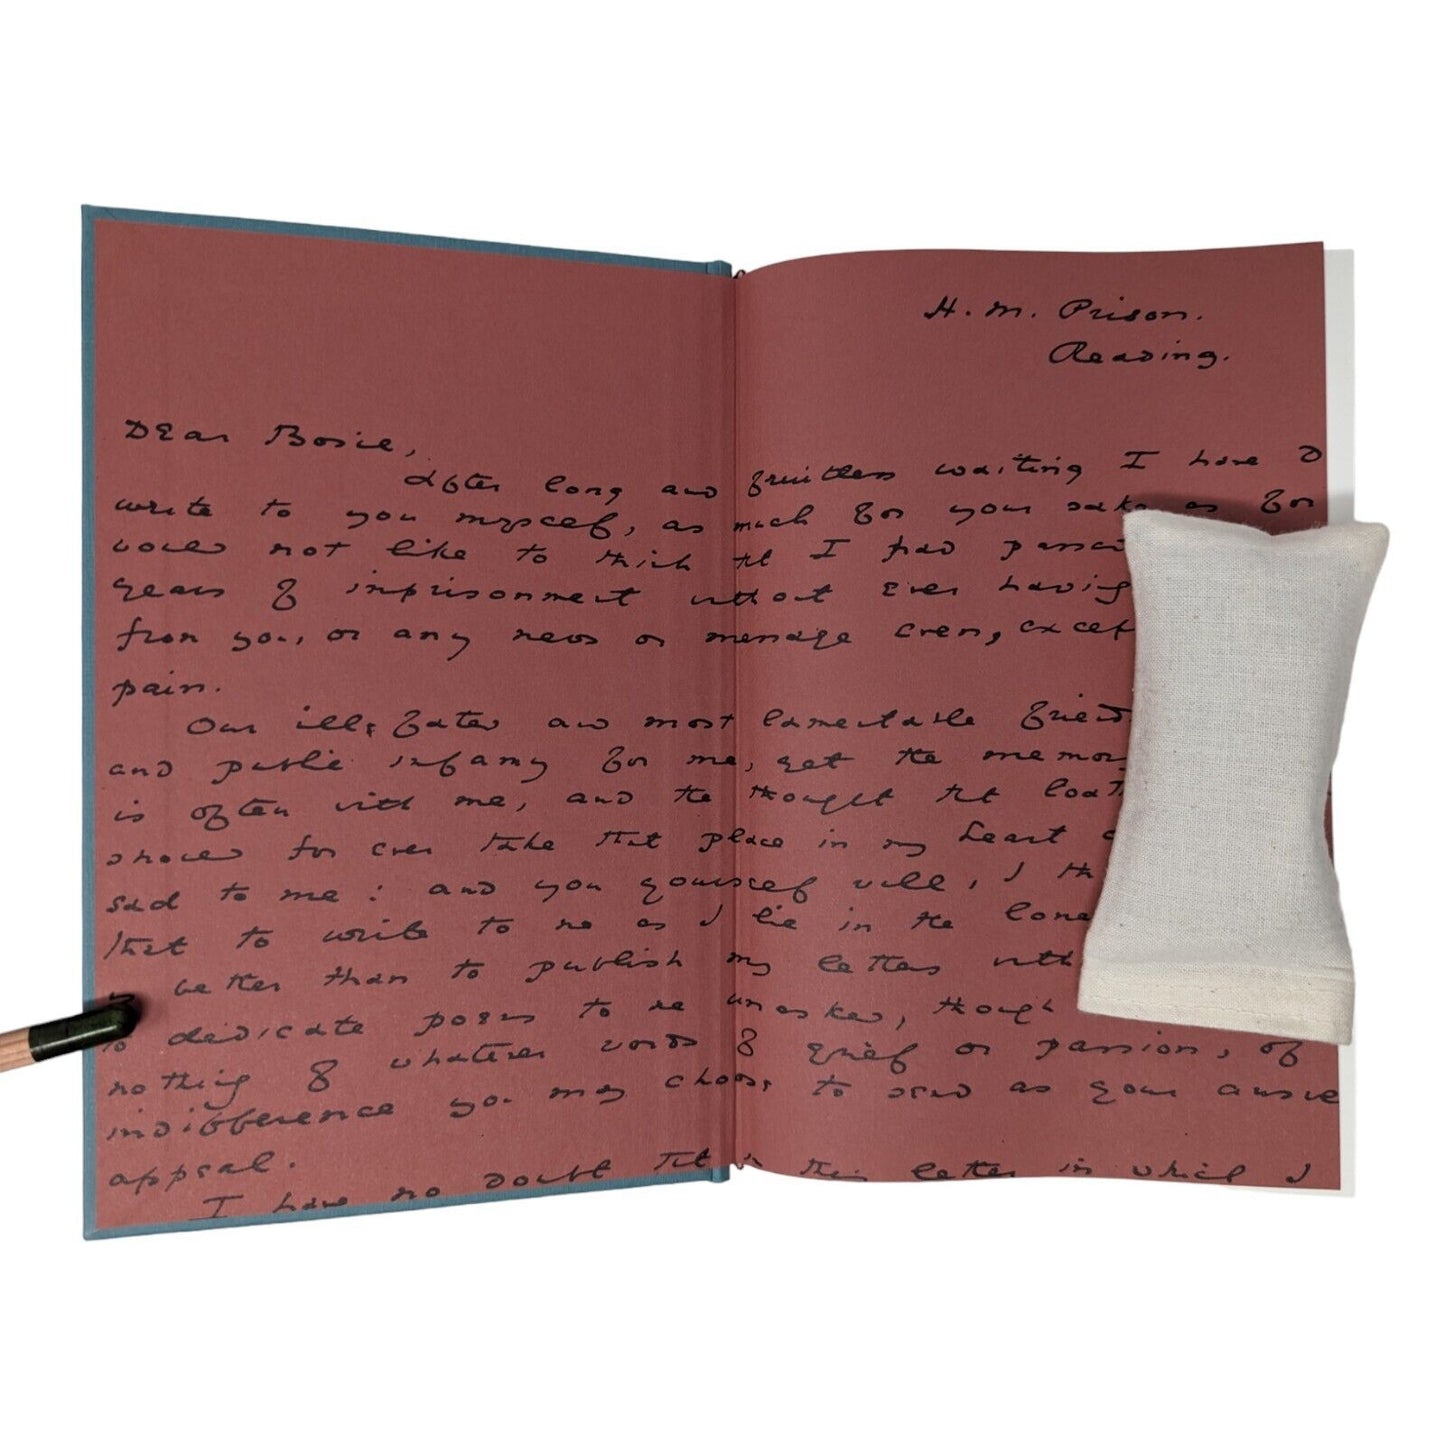 H. M. Prison.
Reading.
Dear Bosie,
After long and fruitless waiting I have D
write to you myself, as much for your sake as for
would not like to think tht I had passed
years of imprisonment without ever having
from you, or any news or message even, excep
pain.
Our ill-fated and most lamentable friend
and public infamy for me, yet the memor
is often with me, and the thought tht loath
should for ever take tht place in my heart
sad to me: and you yourself will, I th
that to write to me as I lie in the lone
is better than to publish my letters with
to dedicate poems to me unasked, though
nothing of whatever words of grief or passion, of
indifference you may choose to send as your answe
appeal.
I have no doubt tht in this letter in which I